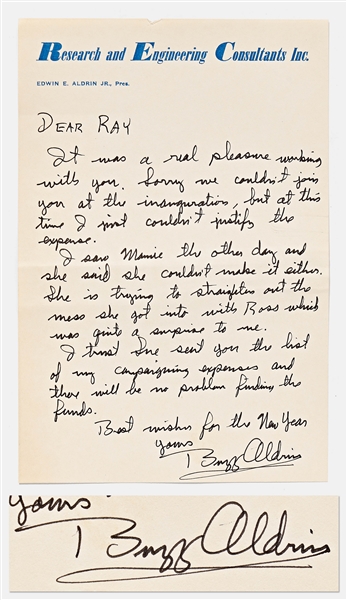 Research and Engineering Consultants Inc.
EDWIN E. ALDRIN JR., Pres.
DEAR RAY
It was a real pleasure working
with you. Sorry we couldn't join
you at the inauguration, but at this
time I just couldn't justify the
expense.
I saw Mamie the other day and
she said she couldn't make it either.
She is trying to straighten out the
mess she got into with Boss which
was quite a surprise to me.
I trust she sent you the list
of my campaigning expenses and
there will be no problem finding the
funds.
Best wishes for the New Year
Yours
Buzz Aldrin
yours
Buzz Aldrin